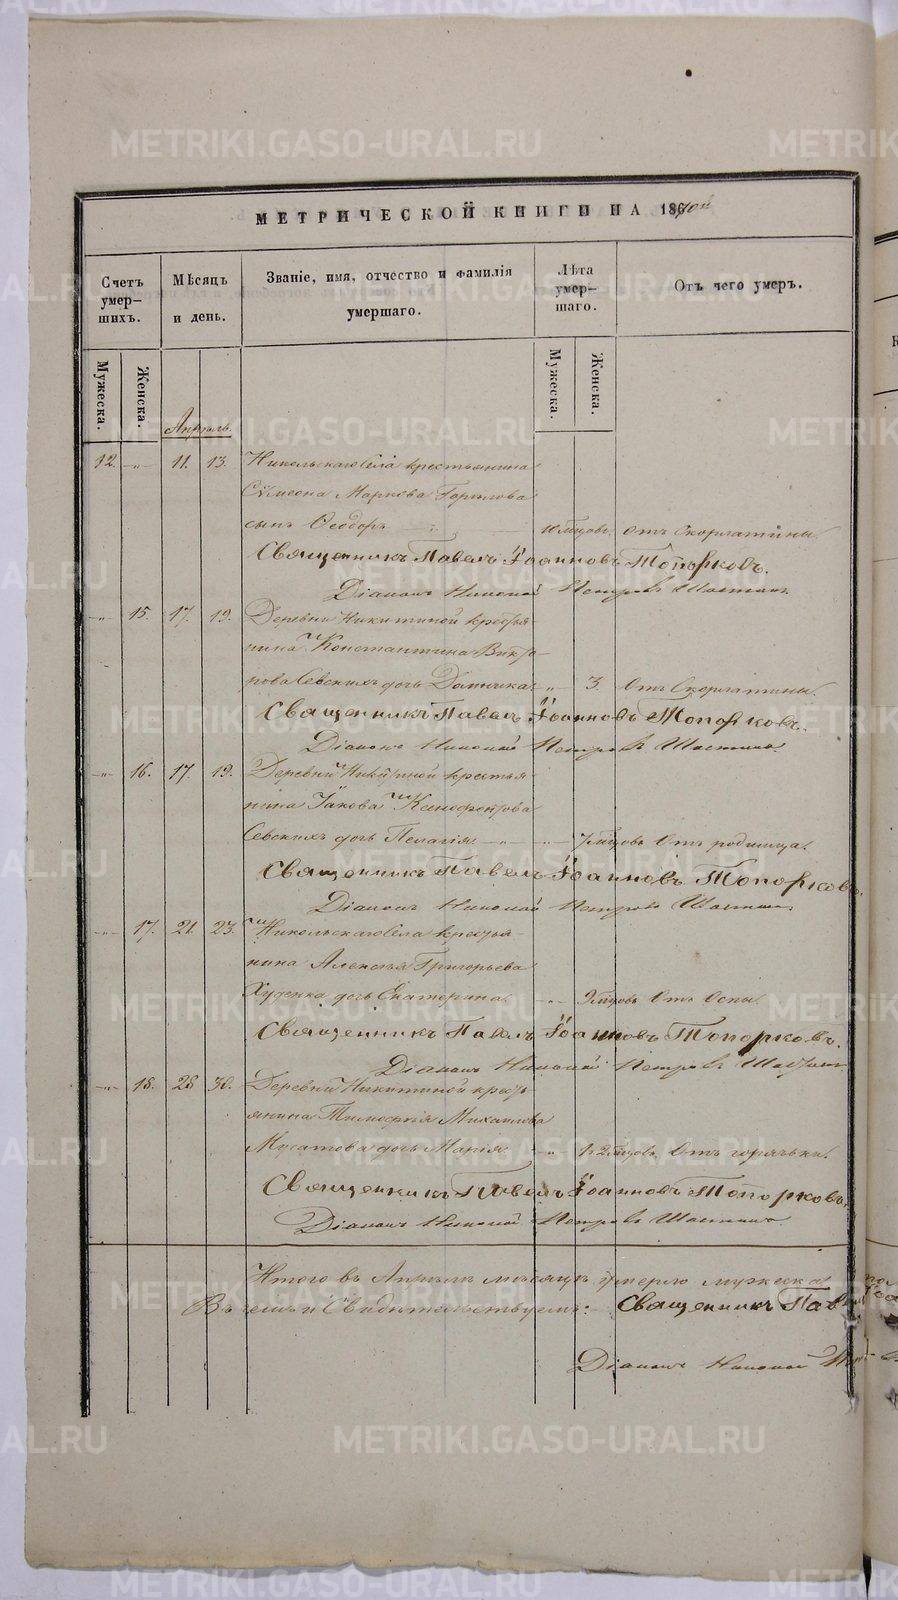 МЕТРИЧЕСКОЙ КНИГИ НА 1870й
Счетъ умер-шихъ.
Мѣсяцъ и день.
Званіе, имя, отчество и фамилія умершаго.
Лѣта умер-шаго.
Отъ чего умеръ.
Мужеска. Женска. Мужеска. Женска.
Апрѣль.
12. „ 11. 13. Никольскаго села крестьянина
Сѵмеона Маркова
сынъ Ѳеодоръ мѣсяцовъ Отъ Скорлатины.
Священникъ Павелъ Іоанновъ Топорковъ.
Діаконъ Николай Петровъ
„ 15. 17. 19. Деревни Никитиной крестья-
нина Константина Викто-
рова Севскихъ дочь „ 3. Отъ Скорлатины.
Священникъ Павелъ Іоанновъ Топорковъ.
Діаконъ Николай Петровъ
„ 16. 17. 19. Деревни Никитиной крестья-
нина Іакова Ксенофонтова
Севскихъ дочь Пелагія. „ Отъ родимца.
Священникъ Павелъ Іоанновъ Топорковъ.
Діаконъ Николай Петровъ
„ 17. 21. 23. Никольскаго села крестья-
нина Алексѣя Григорьева
дочь Екатерина. „ Отъ Оспы.
Священникъ Павелъ Іоанновъ Топорковъ.
Діаконъ Николай Петровъ
„ 18. 28. 30. Деревни Никитиной кресть-
янина Тимофея Михаилова
Мусатова дочь Марія „ Отъ горячьки.
Священникъ Павелъ Іоанновъ Топорковъ.
Діаконъ Николай Петровъ
Итого въ Апрѣлѣ мѣсяцѣ умерло мужеска
Въ чемъ и Свидѣтельствуемъ: Священникъ Пав
Діаконъ Николай
METRIKI.GASO-URAL.RU